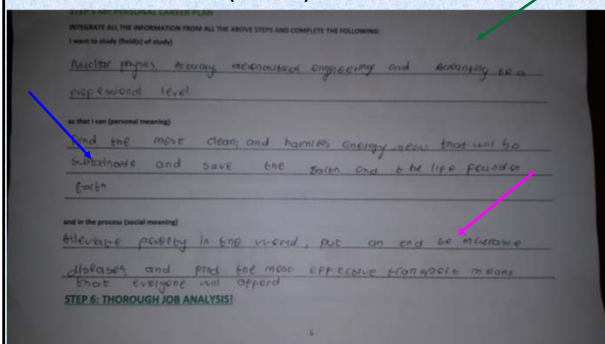 STEP 5 MY PERSONAL CAREER PLAN
INTEGRATE ALL THE INFORMATION FROM ALL THE ABOVE STEPS AND COMPLETE THE FOLLOWING:
I want to study (field(s) of study)
Nuclear physics, Actuary aeronautical engineering and Accounting to a
professional level
so that I can (personal meaning)
find the most clean, and harmless energy that will be
and save the Earth and to be life
Earth
and in the process (social meaning)
Alleviate poverty in the world, put an end to incurable
diseases, and find the most effective transport means
that everyone will afford
STEP 6: THOROUGH JOB ANALYSIS!